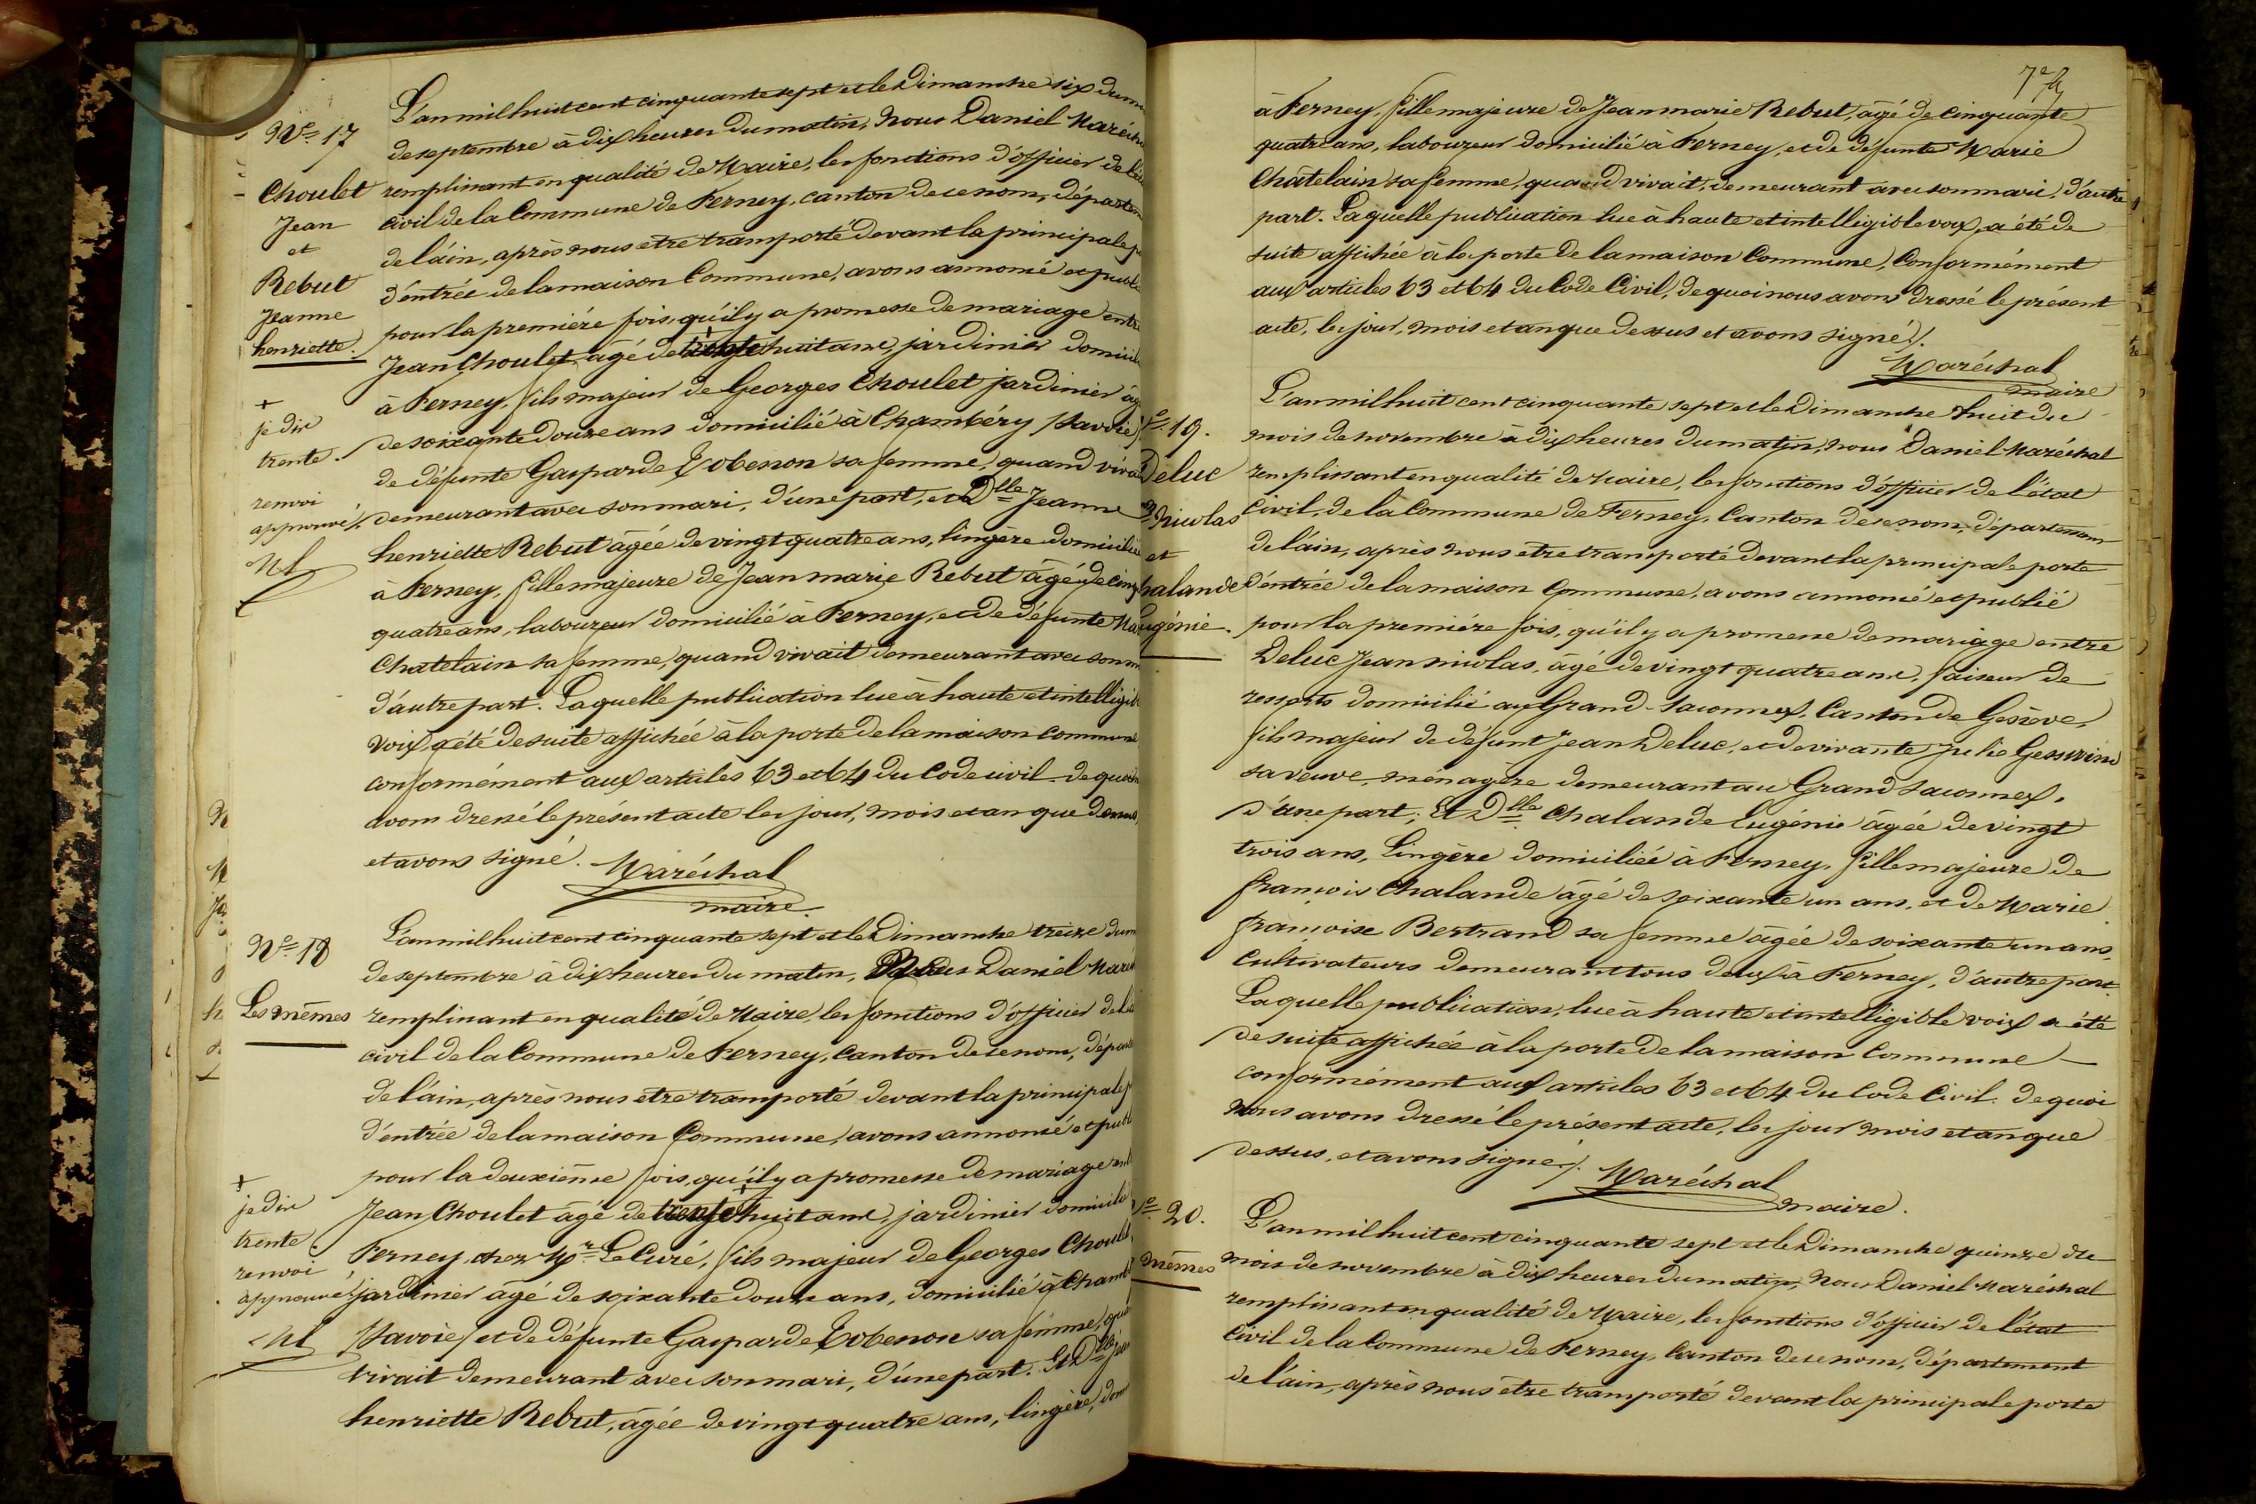 N° 17
Choulet
Jean
et
Rebut
Jeanne
henriette.
+
je dis
trente.
renvoi
approuvé
L'an mil huit cent cinquante sept et le Dimanche six du
de septembre à dix heures du matin, Nous Daniel Maréchal
remplissant en qualité de Maire, les fonctions d'officier de
civil de la Commune de Ferney, canton de ce nom, départem
de l'ain, après nous être transporté devant la principale
d'éntrée de la maison Commune, avons annoncé et publi
pour la première fois, qu'il y a promesse de mariage entre
Jean Choulet âgé de trente huit ans, jardinier domicili
à Ferney, fils majeur de Georges Choulet jardinier âg
de soixante douze ans domicilié à Chambéry (Savoie)
de défunte Gasparde Tobenon sa femme, quand viva
demeurant avec son mari, d'une part, et Dlle Jeanne
henriette Rebut âgée de vingt quatre ans, lingère domiciliée
à Ferney, fille majeure de Jean marie Rebut âgé de cinq
quatre ans, laboureur domicilié à Ferney, et de défunte Ma
Chatelain sa femme, quand vivait demeurant avec son
d'autre part. Laquelle publication lue à haute et intelligib
voix, a été de suite affichée à la porte de la maison commune
conformément aux articles 63 et 64 du Code civil de quoi
avons dressé le présent acte les jour, mois et an que dessus,
et avons signé. Maréchal
maire.
N° 18
Les mêmes
+
je dis
trente
renvoi
approuvé
L'an mil huit cent cinquante sept et le Dimanche treize du
de septembre à dix heures du matin, Nous Daniel Maré
remplissant en qualité de Maire, les fonctions d'officier de l'é
civil de la Commune de Ferney, Canton de ce nom, dépar
de l'ain, après nous être transporté devant la principale
d'entrée de la maison Commune, avons annoncé et publ
pour la deuxième fois, qu'il y a promesse de mariage
Jean Choulet âgé de trente huit ans, jardinier domicilié
Ferney, chez Mr Le Curé, fils majeur de Georges Choul
jardinier âgé de soixante douze ans, domicilié à Chamb
(Savoie) et de défunte Gasparde Tobenon sa femme, qu
vivait demeurant avec son mari, d'une part. Et Dlle
henriette Rebut, âgée de vingt quatre ans, lingère, dom
7e
à Ferney, fille majeure de Jean marie Rebut, âgé de cinquante
quatre ans, laboureur domicilié à Ferney, et de défunte Marie
Châtelain sa femme, quand vivait, demeurant avec son mari, d'autre
part. Laquelle publication lue à haute et intelligible voix, a été de
suite affichée à la porte de la maison Commune, Conformément
aux articles 63 et 64 du Code Civil, de quoi nous avons dressé le présent
acte, les jour, mois et an que dessus et avons signé.
Maréchal
maire
19.
Deluc
Nicolas
et
halande
ugénie.
L'an mil huit cent cinquante sept et le Dimanche huit du
mois de novembre à dix heures du matin, nous Daniel Maréchal
remplissant en qualité de Maire, les fonctions d'officier de l'état
Civil, de la Commune de Ferney, Canton de ce nom, département
de l'ain, après nous être transporté devant la principale porte
d'éntrée de la maison Commune, avons annoncé et publié
pour la première fois, qu'il y a promesse de mariage entre
Deluc Jean nicolas, âgé de vingt quatre ans, faiseur de
ressorts domicilié au Grand-Saconnex, Canton de Genève,
fils majeur de défunt Jean Deluc, et de vivante Julie
sa veuve, ménagère demeurant au Grand Saconnex,
d'une part, Et Dlle Chalande Eugénie âgée de vingt
trois ans, Lingère domiciliée à Ferney, fille majeure de
françois Chalande âgé de soixante un ans, et de Marie
françoise Bertrand sa femme âgée de soixante un ans,
Cultivateurs demeurant tous deux à Ferney, d'autre part.
Laquelle publication, lue à haute et intelligible voix a été
de suite affichée à la porte de la maison Commune
conformément aux articles 63 et 64 du Code Civil. de quoi
nous avons dressé le présent acte, les jour mois et an que
dessus, et avons signé. Maréchal
maire.
20.
mêmes
L'an mil huit cent cinquante sept et le Dimanche quinze du
mois de novembre à dix heures du matin, Nous Daniel Maréchal
remplissant en qualité de Maire, les fonctions d'officier de l'état
Civil de la Commune de Ferney, Canton de ce nom, département
de l'ain, après nous être transporté devant la principale porte